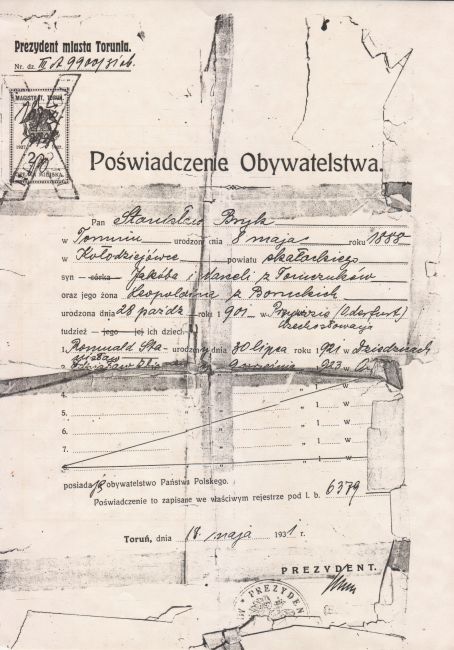 Prezydent miasta Torunia.
Nr. dz. III A 9900/31 ob.
MAGISTRAT TORUŃ
Poświadczenie Obywatelstwa.
Pan Stanisław Bryk
w Toruniu urodzony dnia 8 maja roku 1888
w Kołodziejówce powiatu skałackiego
syn — córka — Jakóba i Karoli z Tomczuków
oraz jego żona Leopoldina z
urodzona dnia 28 paźdz. roku 1901 w Przywozie (Oderfurt)
Czechosłowacja
tudzież — jego — jej ich dzieci
Romuald Sta- urodzony dnia 30 lipca roku 1921 w Dziedzicach
nisław
923 w
4. " 1 w
5. " 1 w
6. " 1 w
7. " 1 w
" 1 w
posiadają obywatelstwo Państwa Polskiego.
Poświadczenie to zapisane we właściwym rejestrze pod l. b. 6379
Toruń, dnia 18 maja 1931 r.
PREZYDENT.
PREZYDEN